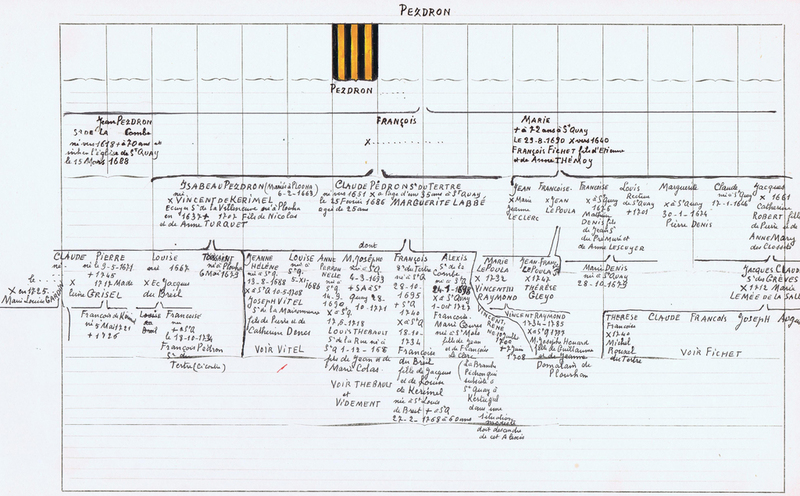 PEZDRON
PEZDRON
Jean PEZDRON
Sr DE LA Combe
né vers 1618 + à 70 ans et
inh. en l'église de St QUAY
le 15 Mars 1688
FRANÇOIS
X
MARIE
+ à 72 ans à St QUAY
LE 29-8-1690 X vers 1640
FRANÇOIS FICHET fils d'Etienne
et de Anne THEMOY
YSABEAU PEZDRON (Mariée à PLOUHA
né 6-2-1663)
X VINCENT DE KERIMEL
Ecuyer Sr de la Villeneuve né à Plouha
en 1637 + 1707 Fils de Nicolas
et de Anne TURQUET
CLAUDE PÉDRON Sr DU TERTRE
né vers 1651 X à l'âge d'env 35 ans à St QUAY
le 25 Février 1686 MARGUERITE LABBÉ
âgée de 25 ans
JEAN
X Marie
Jeanne
LECLERC
FRANÇOISE
X JEAN
LE POULA
FRANÇOISE
X St Quay
1676
Mathurin
DENIS fils
de Jean Sr
du Prémorin et
de Anne LESCOYER
LOUIS
Recteur
de St Quay
+ 1701
Marguerite
X à St QUAY
30-1-1674
Pierre DENIS
Claude
né à St Quay
17-1-1646
Jacques
X 1661
Catherine
ROBERT fille
de Pierre et de
ANNE Mary
des Clessonts
dont
CLAUDE
X en 1725
Marie Louise
PIERRE
né le 9-5-1671
+ 1745
X 1717 Made
leine GRISEL
LOUISE
née 1667
X Ec Jacques
du Breil
TOUSSAINT
né à Plouha
6 Mai 1673
JEANNE
HÉLÈNE
née à St Q.
13-8-1688
X à St Q 10-5-1708
JOSEPH VITEL
Sr de la Maisonneuve
fils de Pierre et de
Catherine Denis
VOIR VITEL
LOUISE
née à
St Q.
5-XI-
1686
ANNE
PERRINE
née à
St Q
14-9
1690
X à St Q.
17-6-1718
LOUIS THEBAULT
Sr de la Rue né à
St Q 1-12-168
fils de Jean et de
Marie Colas
VOIR THEBAULT
et
VIDEMENT
M. JOSÈPHE
née à St Q
4-3-1693
+ SA à St
QUAY 28-
10-1771
FRANÇOIS
Sr du Tertre
né à St Q.
28-10-
1695
+ St Q
1740
X à St Q
18-10-
1734
Françoise
du Breil
fille de Jacques
et de Louise
de Kerimel
née à St Louis
du Breil + à St Q
27-2-1768 à 60 ans
ALEXIS
Sr de la
Combe
né à St Q
24-1-1698
X à St Quay
1-oct 1723
Françoise
fille de Jean
et de François
Le Clerc
(La Branche
Pédron qui
subsiste à
St Quay à
Kertugal
dans une
situation
modeste
doit descendre
de cet Alexis
MARIE
LE POULA
X 1732
VINCENT
RAYMOND
JEAN-FRANC.
LE POULA
X 1767
THÉRÈSE
GLEYO
MARIE DENIS
née à St Quay
28-10-1679
JACQUES CLAUDE
Sr des GRÈVES
X 1712 Marie
LEMÉE DE LA SALLE
VINCENT
RENÉ
1708
VINCENT RAYMOND
1734-1785
X à St Q 1757
M. Josephe Houart
fille de Guillaume
et de Jeanne
Domalain de
Plourhan
François de K
né 9 Mai 1721
+ 1726
Louise
du
Breil
Françoise
X à St Q.
le 18-10-1734
François Pédron
Sr du
Tertre (Ci contre)
THÉRÈSE
Françoise
X 1740
Michel
Rouxel
du Tertre
CLAUDE
FRANÇOIS
JOSEPH
VOIR FICHET